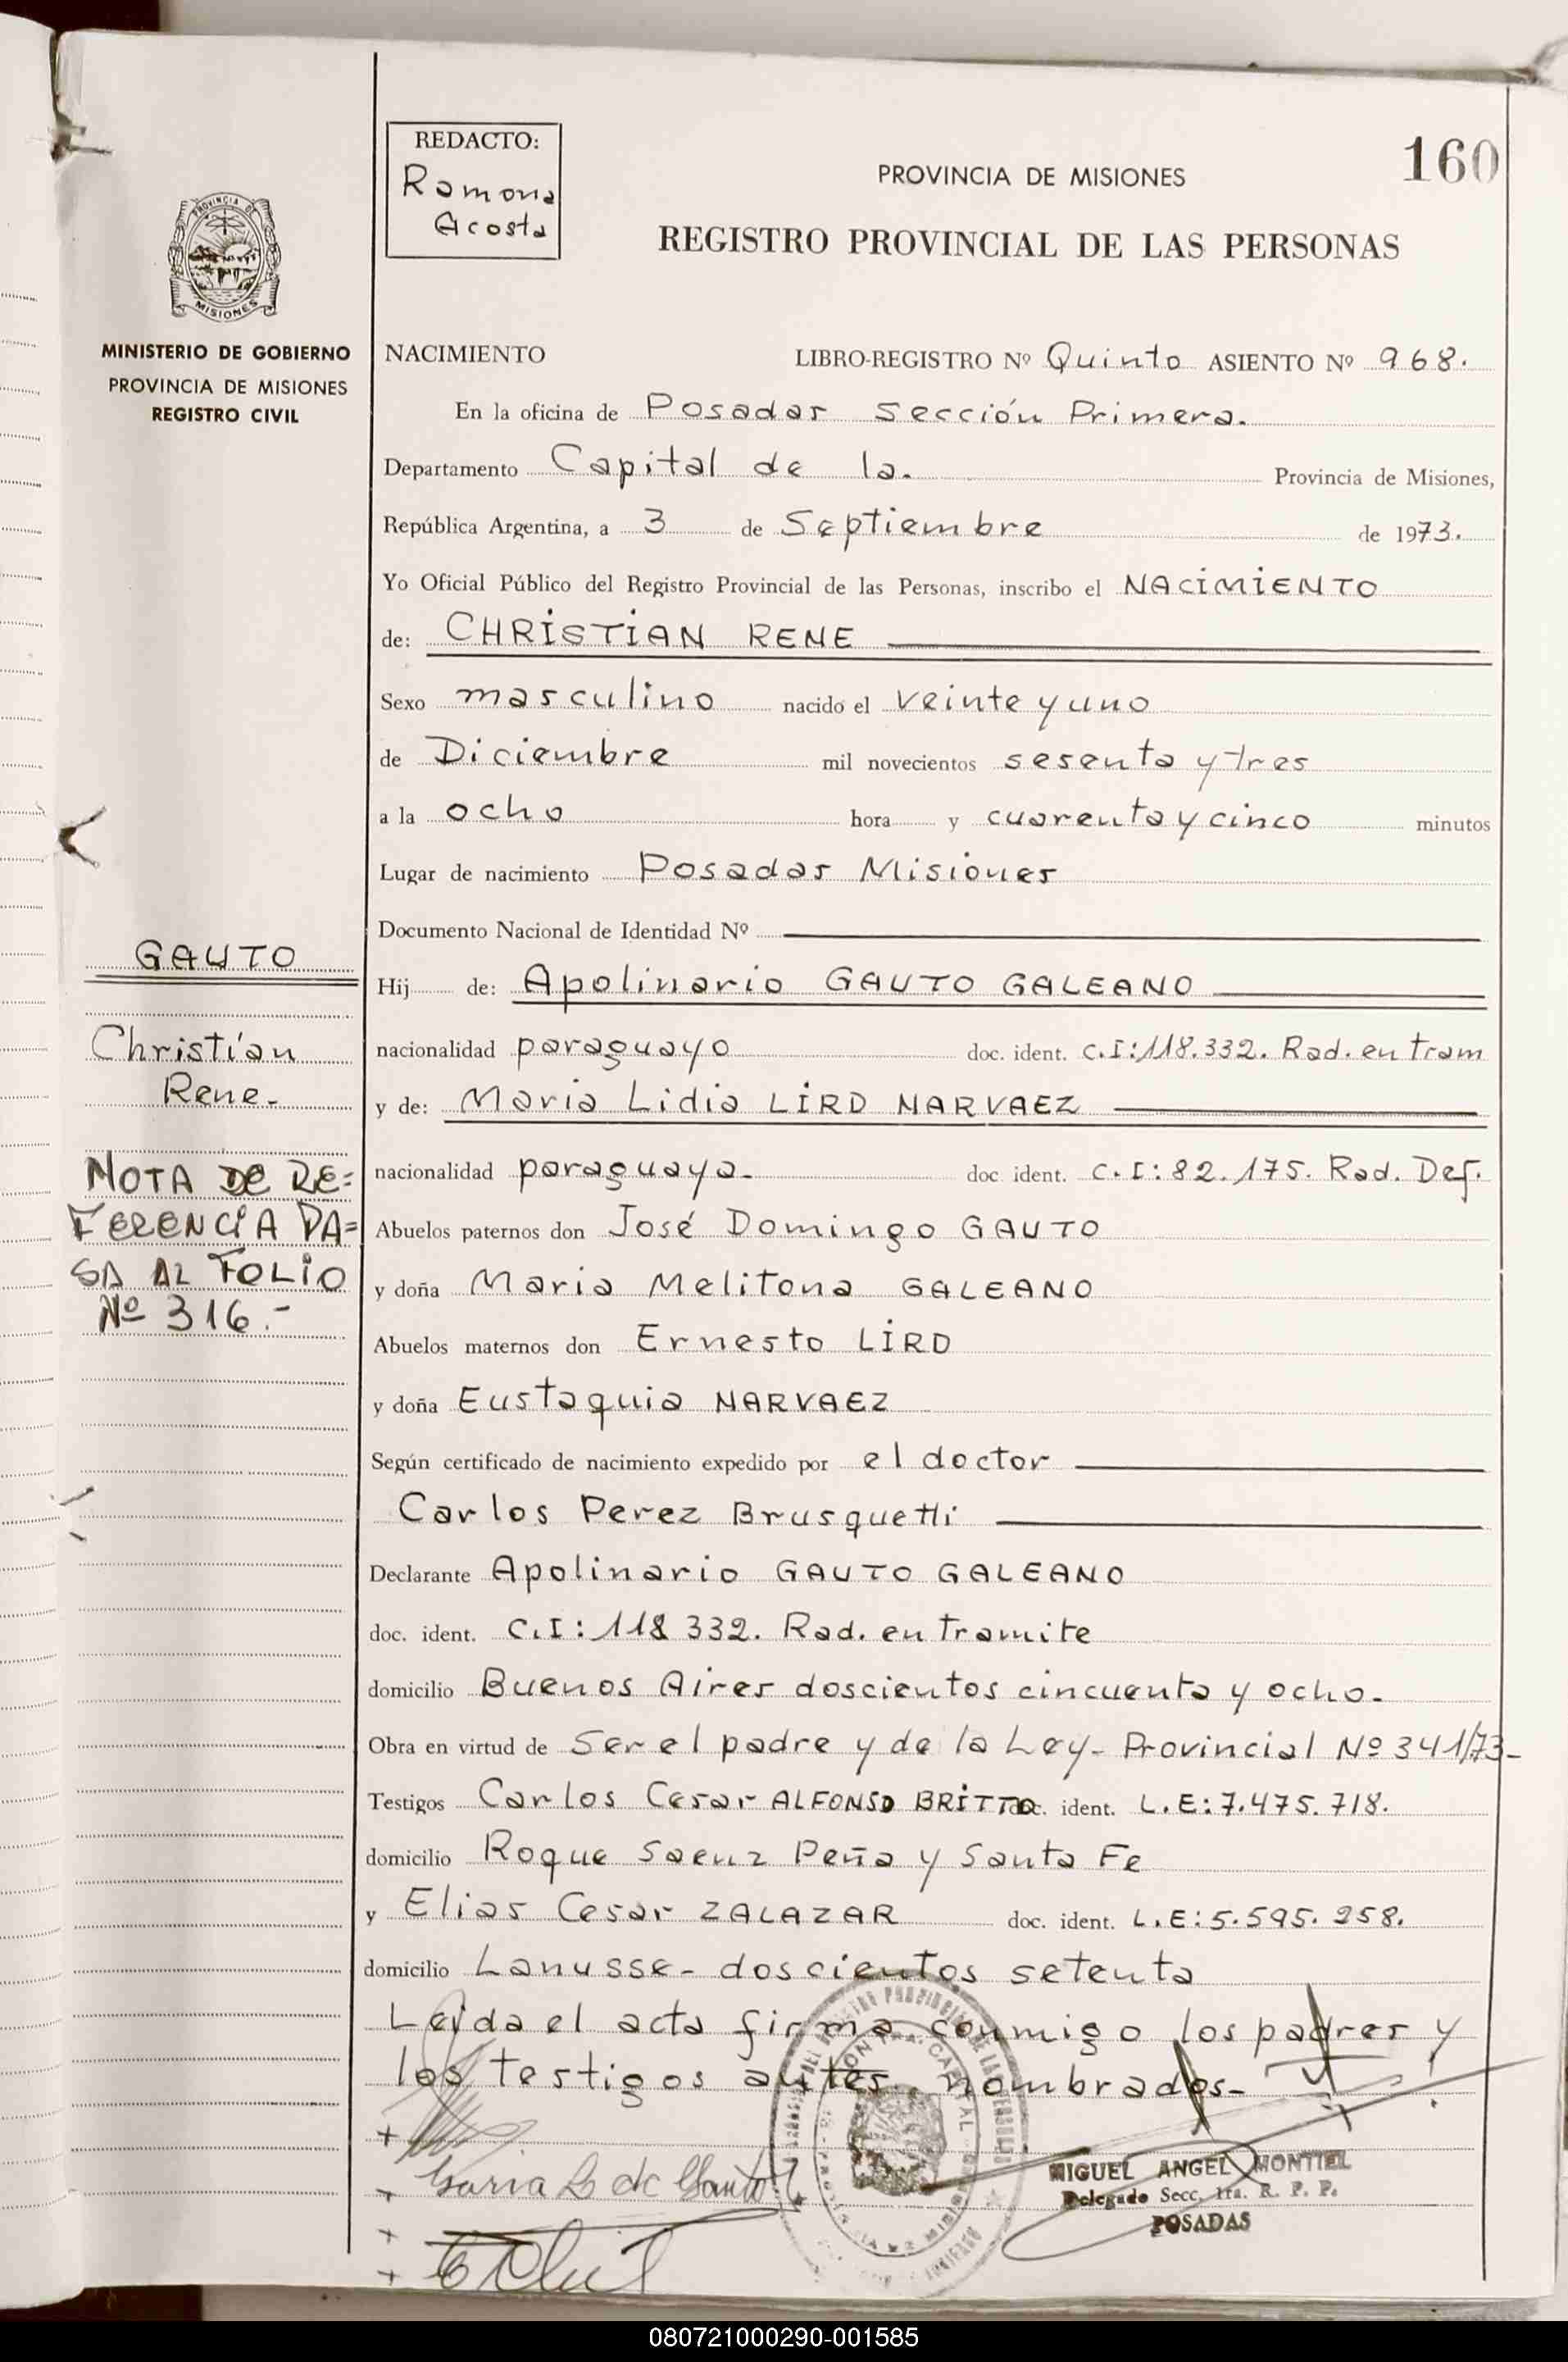 REDACTO:
Ramona
Acosta
160
PROVINCIA DE MISIONES
REGISTRO PROVINCIAL DE LAS PERSONAS
PROVINCIA DE
MISIONES
MINISTERIO DE GOBIERNO
PROVINCIA DE MISIONES
REGISTRO CIVIL
NACIMIENTO LIBRO-REGISTRO Nº Quinto ASIENTO Nº 968.
En la oficina de Posadas sección Primera.
Departamento Capital de la. Provincia de Misiones,
República Argentina, a 3 de Septiembre de 1973.
Yo Oficial Público del Registro Provincial de las Personas, inscribo el NACIMIENTO
de: CHRISTIAN RENE
Sexo masculino nacido el veinte y uno
de Diciembre mil novecientos sesenta y tres
a la ocho hora y cuarenta y cinco minutos
Lugar de nacimiento Posadas Misiones
Documento Nacional de Identidad Nº
GAUTO
Christían
Rene-
NOTA DE RE=
FERENCIA PA=
SA AL FOLIO
Nº 316.-
Hij de: Apolinario GAUTO GALEANO
nacionalidad paraguayo doc. ident. C.I:118.332. Rad. en tram
y de: Maria Lidia LIRD NARVAEZ
nacionalidad paraguaya- doc. ident. C.I:82.175. Rad. Def.
Abuelos paternos don José Domingo GAUTO
y doña Maria Melitona GALEANO
Abuelos maternos don Ernesto LIRD
y doña Eustaquia NARVAEZ
Según certificado de nacimiento expedido por el doctor
Carlos Perez Brusquetti
Declarante Apolinario GAUTO GALEANO
doc. ident. C.I:118 332. Rad. en tramite
domicilio Buenos Aires doscientos cincuenta y ocho-
Obra en virtud de Ser el padre y de la Ley- Provincial Nº 341/73-
Testigos Carlos Cesar ALFONSO BRITTO doc. ident. L.E:7.475.718.
domicilio Roque Saenz Peña y Santa Fe
y Elias Cesar ZALAZAR doc. ident. L.E:5.595.258.
domicilio Lanusse- doscientos setenta
Leida el acta firma conmigo los padres y
los testigos antes nombrados-
MIGUEL ANGEL MONTIEL
Delegado Secc. 1ra. R. P. P.
POSADAS
080721000290-001585